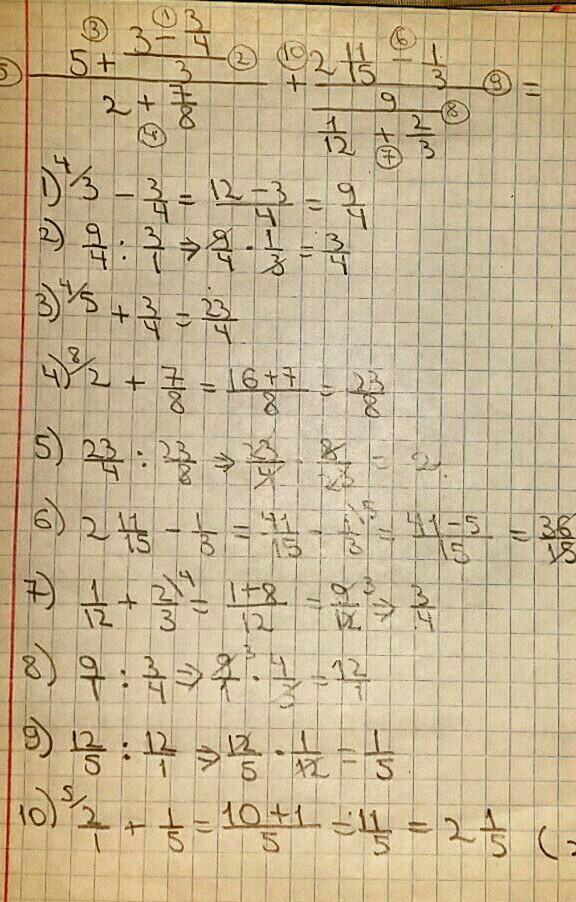 ⑤ (5 + ③ (3 - ① 3/4)/3 ②)/(2 + ④ 7/8) + ⑩ (2 11/15 - ⑥ 1/3)/(9/(1/12 + ⑦ 2/3) ⑧) ⑨ =
1) 4/ 3 - 3/4 = (12-3)/4 = 9/4
2) 9/4 : 3/1 ⇒ 9/4 · 1/3 = 3/4
3) 4/ 5 + 3/4 = 23/4
4) 8/ 2 + 7/8 = (16+7)/8 = 23/8
5) 23/4 : 23/8 ⇒ 23/4 · 8/23 = 2.
6) 2 11/15 - 1/3 = 41/15 - 1/3 \5 = (41-5)/15 = 36/15
7) 1/12 + 2/3 \4 = (1+8)/12 = 9/12 3 ⇒ 3/4
8) 9/1 : 3/4 ⇒ 9/1 3 · 4/3 = 12/1
9) 12/5 : 12/1 ⇒ 12/5 · 1/12 = 1/5
10) 5/ 2/1 + 1/5 = (10+1)/5 = 11/5 = 2 1/5 (